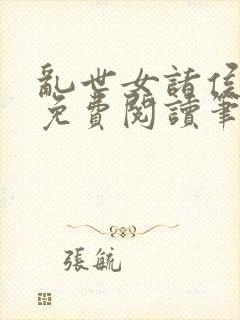 亂世女諸侯
免費閱讀筆
張毓